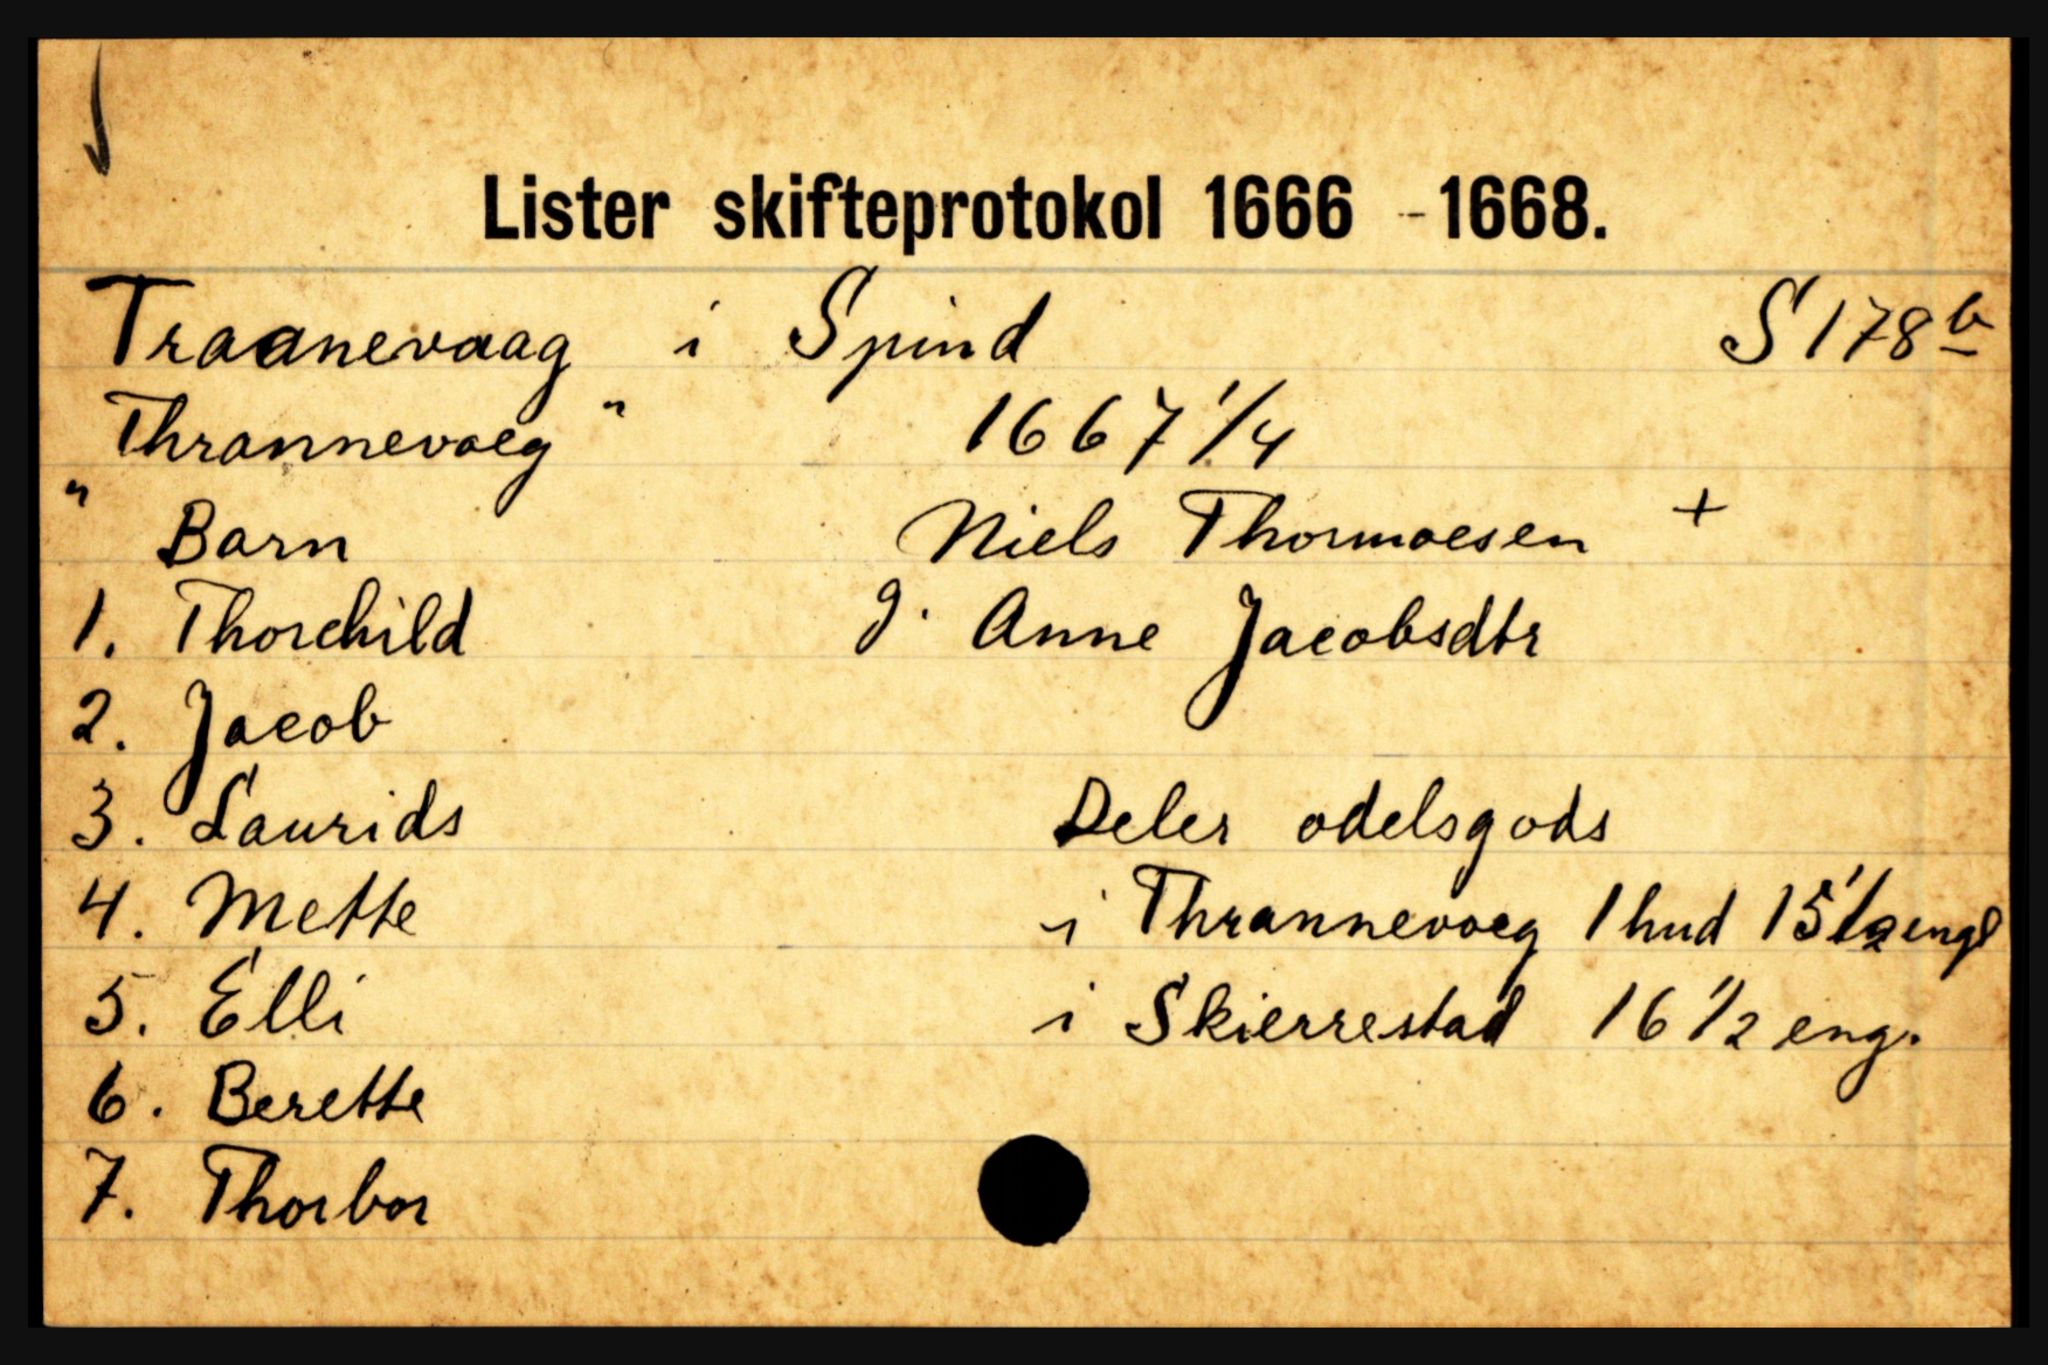 Lister skifteprotokol 1666 - 1668.
Traanevaag i Spind S 178 b
"Thrannevaeg" 1667 1/4
Barn Niels Thormoesen +
1. Thorchild g. Anne Jacobsdtr
2. Jacob
3. Laurids Deler odelsgods
4. Mette i Thrannevaeg 1 hud 15 1/2 engl
5. Elli i Skierrestad 16 1/2 eng.
6. Berette
7. Thorbor